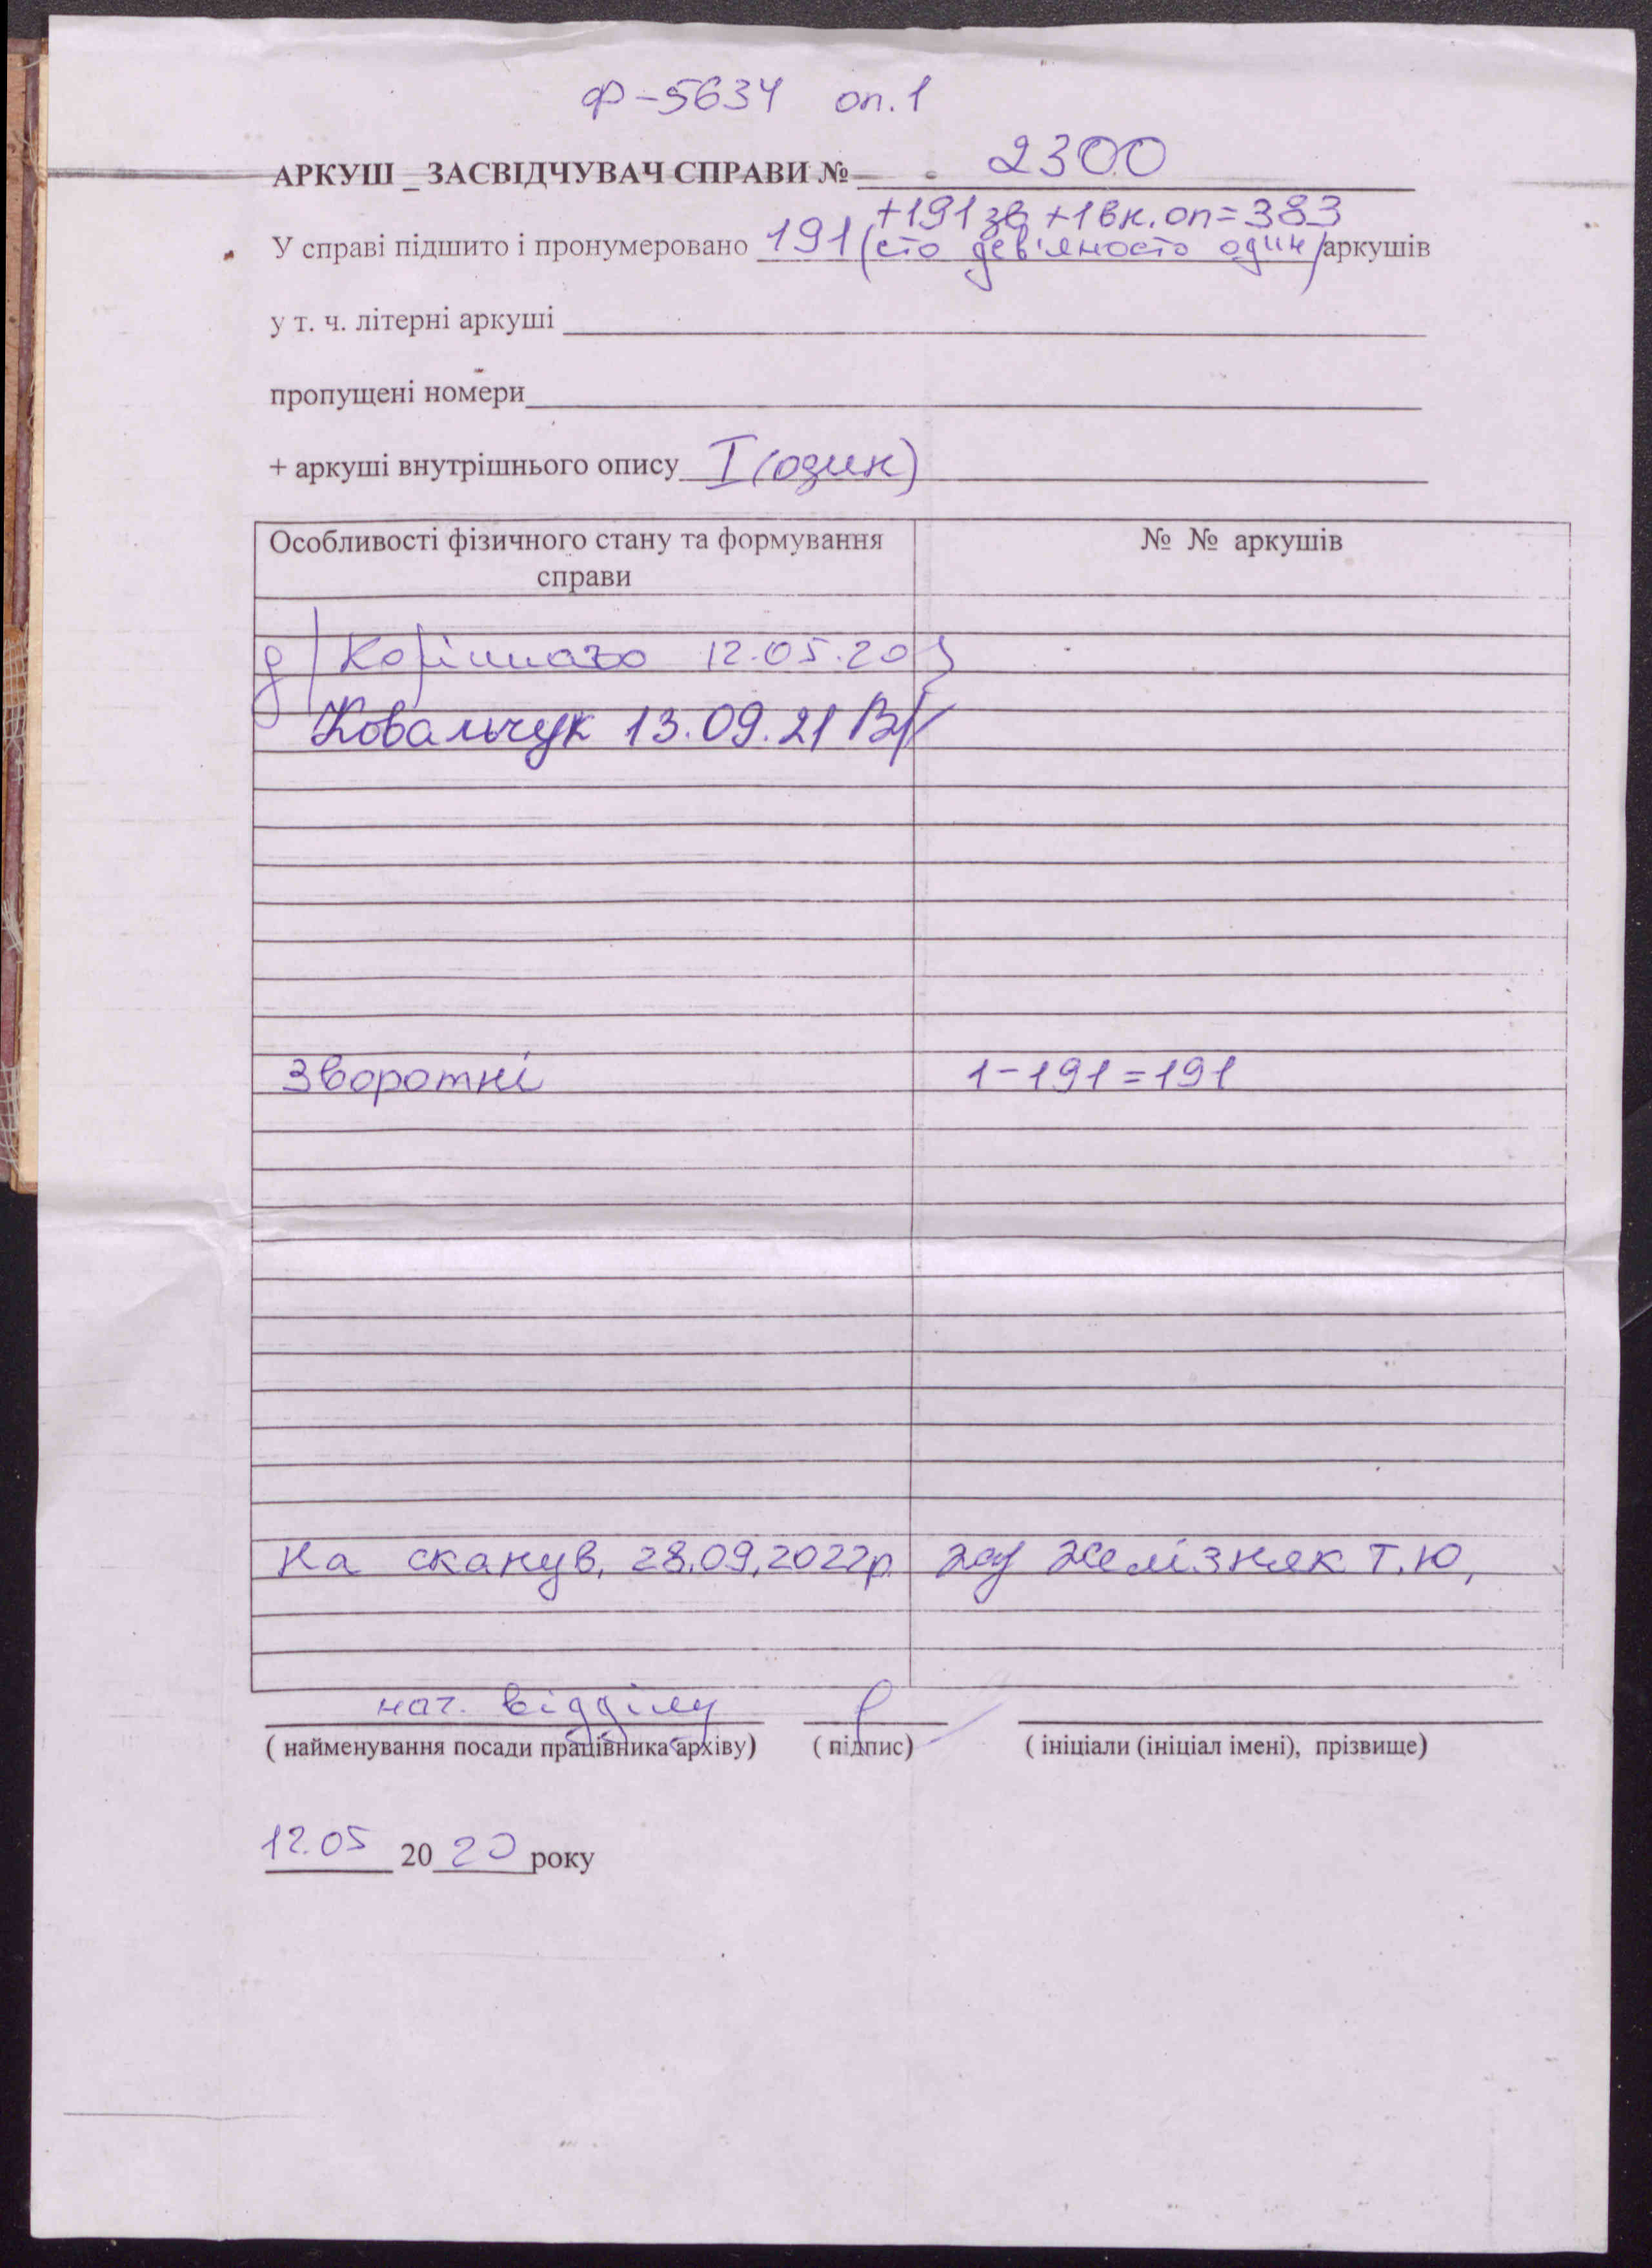 Ф-5634 оп.1
АРКУШ _ ЗАСВІДЧУВАЧ СПРАВИ № 2300
+191 зв +1 вн. оп = 383
У справі підшито і пронумеровано 191 (сто дев'яносто один) аркушів
у т. ч. літерні аркуші
пропущені номери
+ аркуші внутрішнього опису I (один)
Особливості фізичного стану та формування
справи
№ № аркушів
12.05.20
Ковальчук 13.09.21
Зворотні 1-191=191
На сканув. 28.09.2022р. Желізняк Т.Ю.
нач. відділу
( найменування посади працівника архіву) ( підпис) ( ініціали (ініціал імені), прізвище)
12.05 2020 року